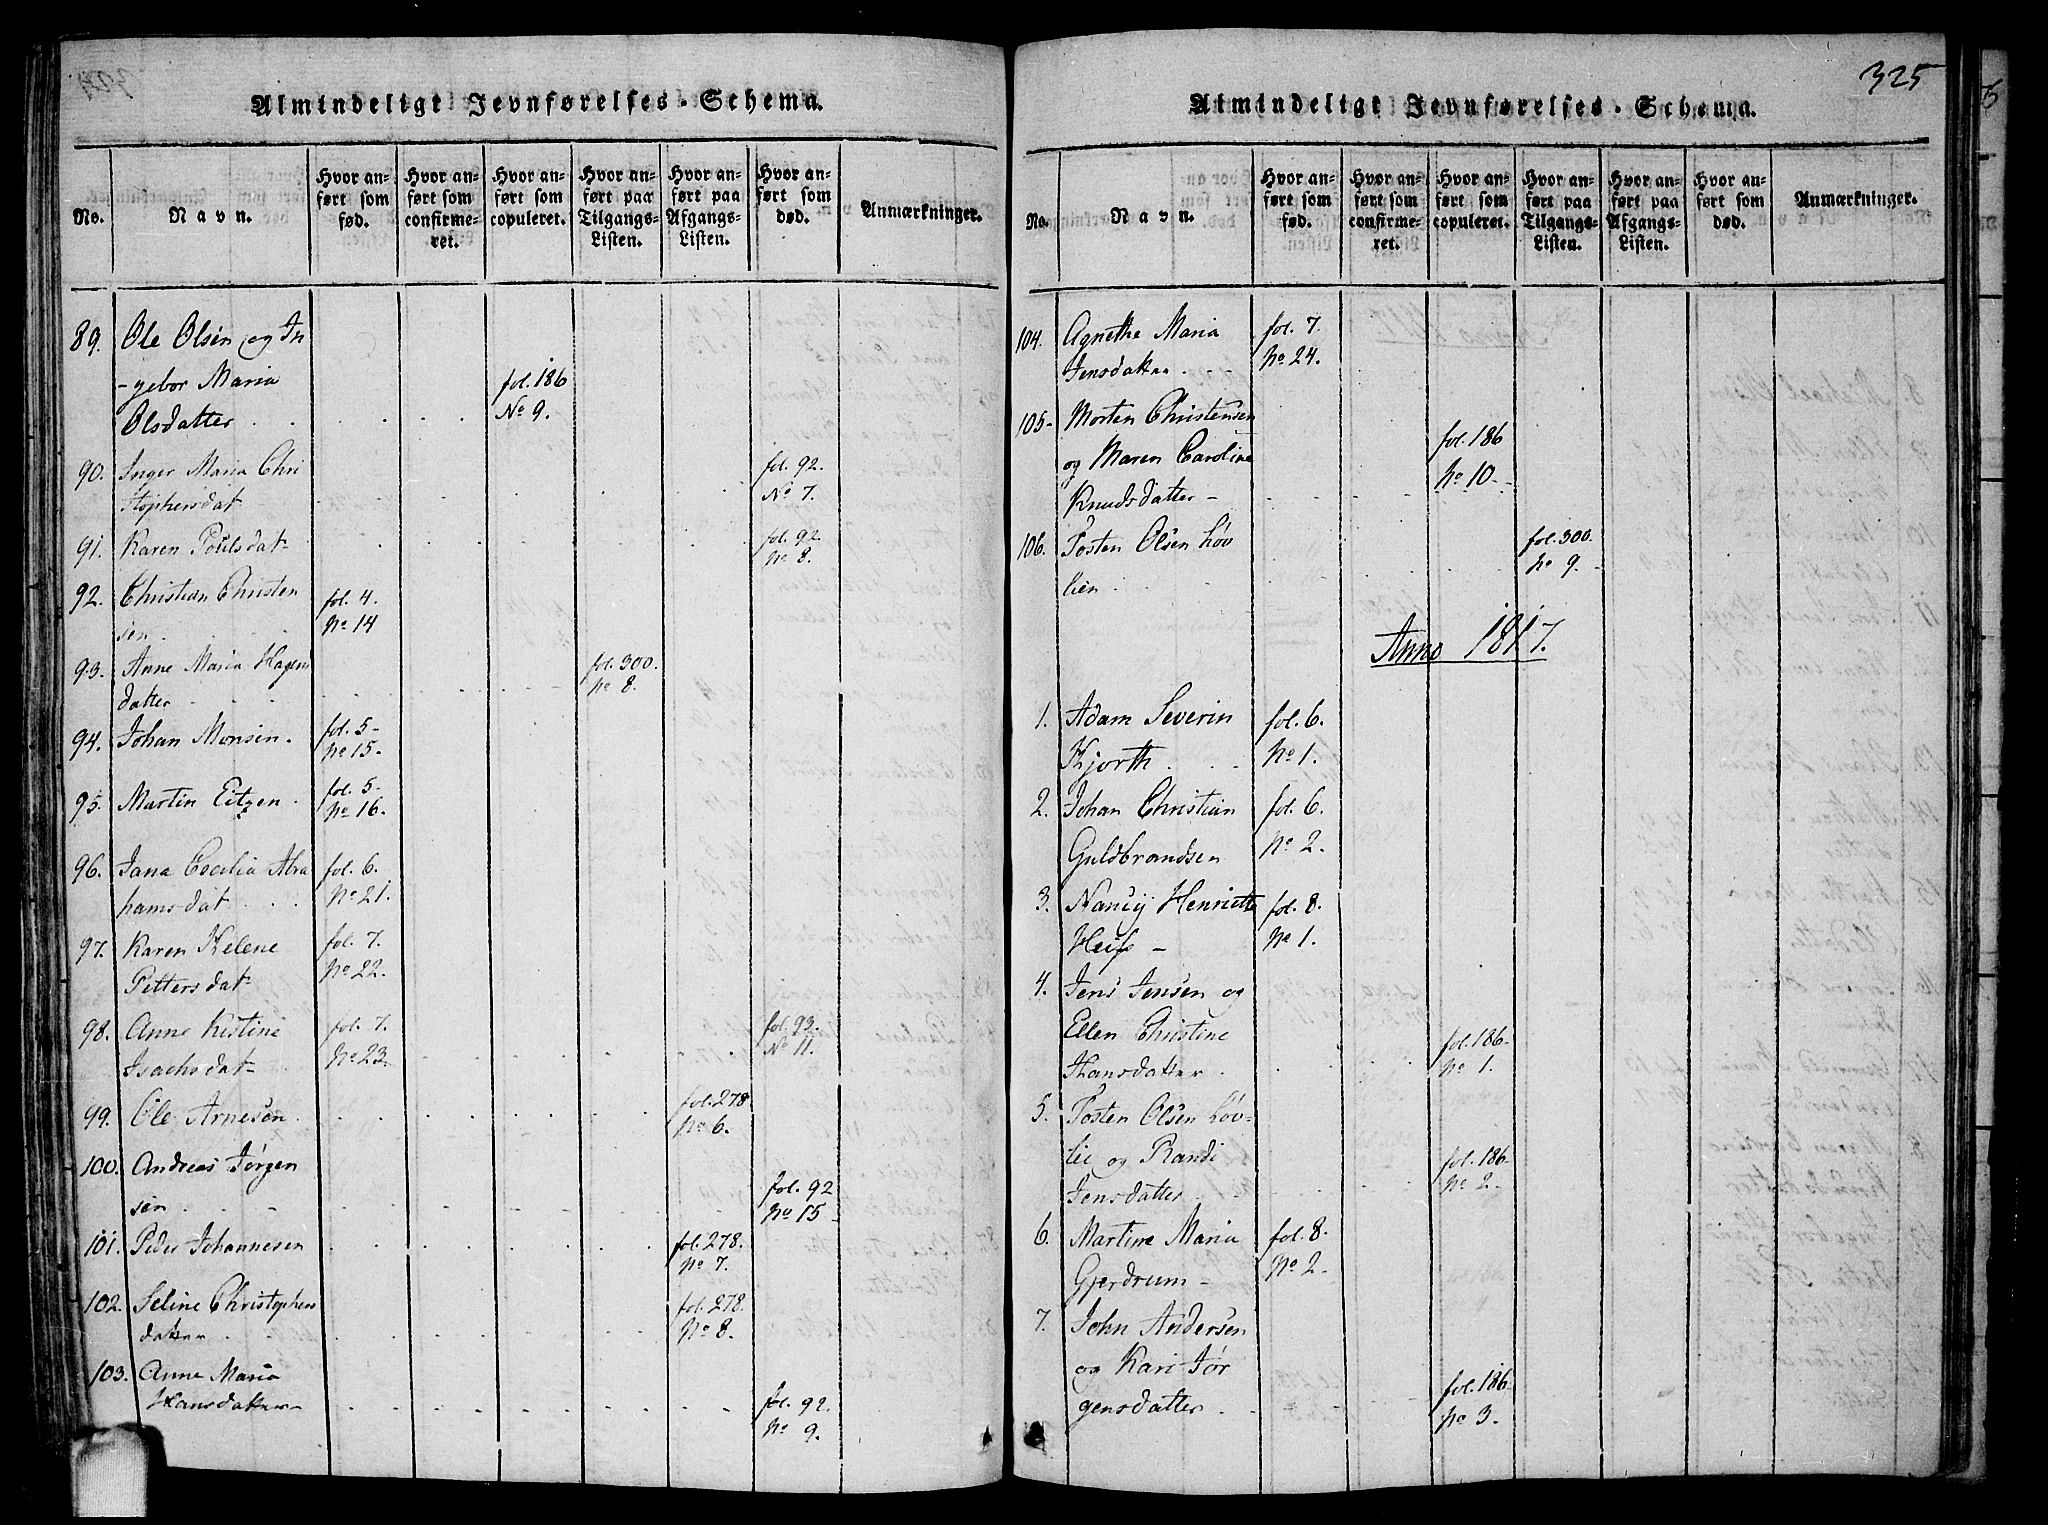 Almindeligt Jevnførelses-Schema.
No.
Navn.
Hvor an-
ført som
fød.
Hvor an-
ført som
confirme-
ret.
Hvor an-
ført som
copuleret.
Hvor an-
ført paa
Tilgangs-
Listen.
Hvor an-
ført paa
Afgangs-
Listen.
Hvor an-
ført som
død.
Anmærkninger.
89. Ole Olsen og In
-gebor Maria fol. 186
Olsdatter . . No 9.
90. Inger Maria Chri fol. 92.
stophersdat No 7.
91. Karen Poulsdat- fol. 92
No 8.
92. Christian Christen fol. 4.
sen . No 14
93. Anne Maria Hagens fol. 300.
datter No 8.
94. Johan Monsen. fol. 5-
No 15-
95. Martin Eitzen . fol. 5-
No 16.
96. Jana Cecilia Abra fol. 6.
hamsdat No 21.
97. Karen Helene fol. 7.
Pettersdat No 22.
98. Anne Kistine fol. 7. fol. 93.
Isachsdat- No 23. No 11.
99. Ole Arnesen . fol. 278
No 6.
100. Andreas Jørgen
sen . fol. 92
No 15-
101. Peder Johannesen fol. 278.
No 7.
102. Seline Christophers fol. 278.
datter No 8.
103. Anne Maria
Hansdatter- fol. 92.
No 9.
325
Almindeligt Jevnførelses-Schema.
No.
Navn.
Hvor an-
ført som
fød.
Hvor an-
ført som
confirme-
ret.
Hvor an-
ført som
copuleret.
Hvor an-
ført paa
Tilgangs-
Listen.
Hvor an-
ført paa
Afgangs-
Listen.
Hvor an-
ført som
død.
Anmærkninger.
104. Agnethe Maria fol. 7.
Jensdatter No 24.
105- Morten Christensen
og Maren Caroline fol. 186
Knudsdatter - No 10-
106. Tosten Olsen Løv fol. 300.
lien . No 9.
Anno 1817.
1. Adam Severin fol. 6.
Hjorth . No 1.
2. Johan Christian fol. 6.
Guldbrandsen No 2.
3. Nancij Henriette fol. 8.
Heifs - No 1.
4. Jens Jensen og
Ellen Christine fol. 186-
Hansdatter . No 1.
5. Tosten Olsen Løv-
lie og Randi fol. 186-
Jensdatter No 2-
6. Martine Maria fol. 8.
Gjerdrum- No 2-
7. John Andersen
og Kari Jør fol. 186-
gensdatter . No 3.